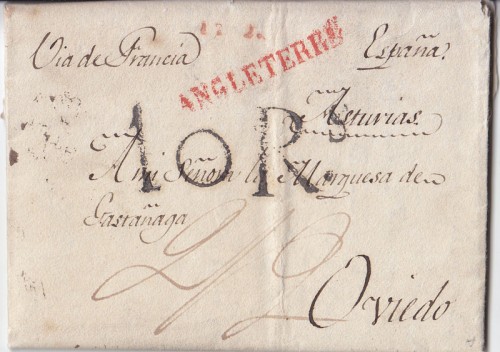 Via de Francia
ANGLETERRE
España.
Asturias.
10 Rs
A mi Señora la Marquesa de
Gastañaga
2/2
Oviedo